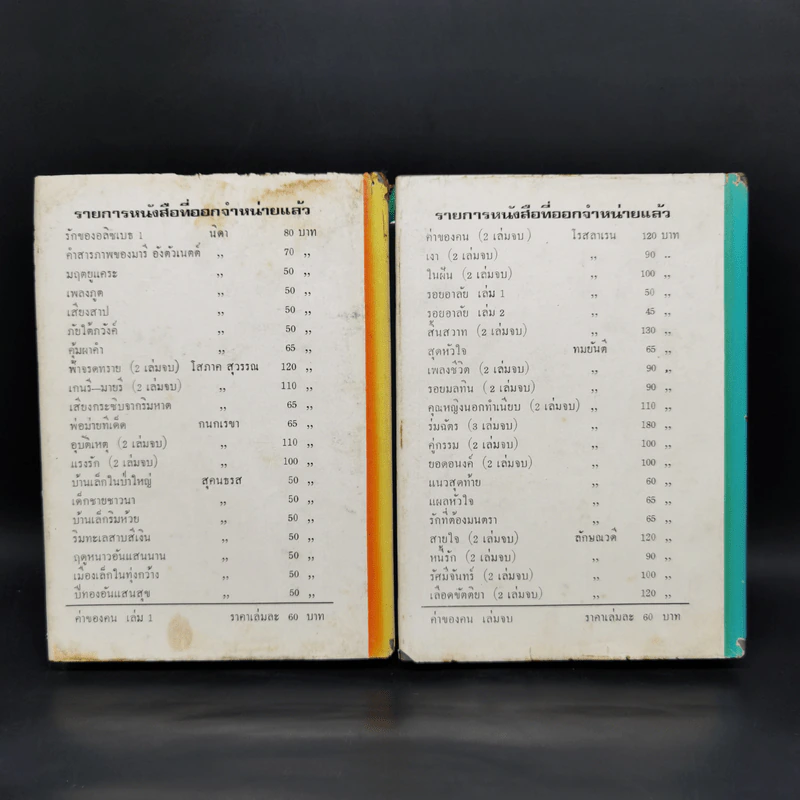 รายการหนังสือที่ออกจำหน่ายแล้ว
รักของอลิซเบธ 1 นิดา 80 บาท
คำสารภาพของมารี อังตัวเนตต์ ,, 70 ,,
มฤตยูแคระ ,, 50 ,,
เพลงภูต ,, 50 ,,
เสียงสาป ,, 50 ,,
ภัยใต้ภวังค์ ,, 50 ,,
คุ้มผาคำ ,, 65 ,,
ฟ้าจรดทราย (2 เล่มจบ) โสภาค สุวรรณ 120 ,,
เกนรี—มายรี (2 เล่มจบ) ,, 110 ,,
เสียงกระซิบจากริมหาด ,, 65 ,,
พ่อม่ายทีเด็ด กนกเรขา 65 ,,
อุบัติเหตุ (2 เล่มจบ) ,, 110 ,,
แรงรัก (2 เล่มจบ) ,, 100 ,,
บ้านเล็กในป่าใหญ่ สุคนธรส 50 ,,
เด็กชายชาวนา ,, 50 ,,
บ้านเล็กริมห้วย ,, 50 ,,
ริมทะเลสาบสีเงิน ,, 50 ,,
ฤดูหนาวอันแสนนาน ,, 50 ,,
เมืองเล็กในทุ่งกว้าง ,, 50 ,,
ปีทองอันแสนสุข ,, 50 ,,
ค่าของคน เล่ม 1 ราคาเล่มละ 60 บาท
รายการหนังสือที่ออกจำหน่ายแล้ว
ค่าของคน (2 เล่มจบ) โรสลาเรน 120 บาท
เงา (2 เล่มจบ) ,, 90 ,,
ในฝัน (2 เล่มจบ) ,, 100 ,,
รอยอาลัย เล่ม 1 ,, 50 ,,
รอยอาลัย เล่ม 2 ,, 45 ,,
สั้นสวาท (2 เล่มจบ) ,, 130 ,,
สุดหัวใจ ทมยันตี 65 ,,
เพลงชีวิต (2 เล่มจบ) ,, 90 ,,
รอยมลทิน (2 เล่มจบ) ,, 90 ,,
คุณหญิงนอกทำเนียบ (2 เล่มจบ) ,, 110 ,,
ร่มฉัตร (3 เล่มจบ) ,, 180 ,,
คู่กรรม (2 เล่มจบ) ,, 100 ,,
ยอดอนงค์ (2 เล่มจบ) ,, 100 ,,
แนวสุดท้าย ,, 60 ,,
แผลหัวใจ ,, 65 ,,
รักที่ต้องมนตรา ,, 65 ,,
สายใจ (2 เล่มจบ) ลักษณวดี 120 ,,
หนี้รัก (2 เล่มจบ) ,, 90 ,,
รัศมีจันทร์ (2 เล่มจบ) ,, 100 ,,
เลือดขัตติยา (2 เล่มจบ) ,, 120 ,,
ค่าของคน เล่มจบ ราคาเล่มละ 60 บาท